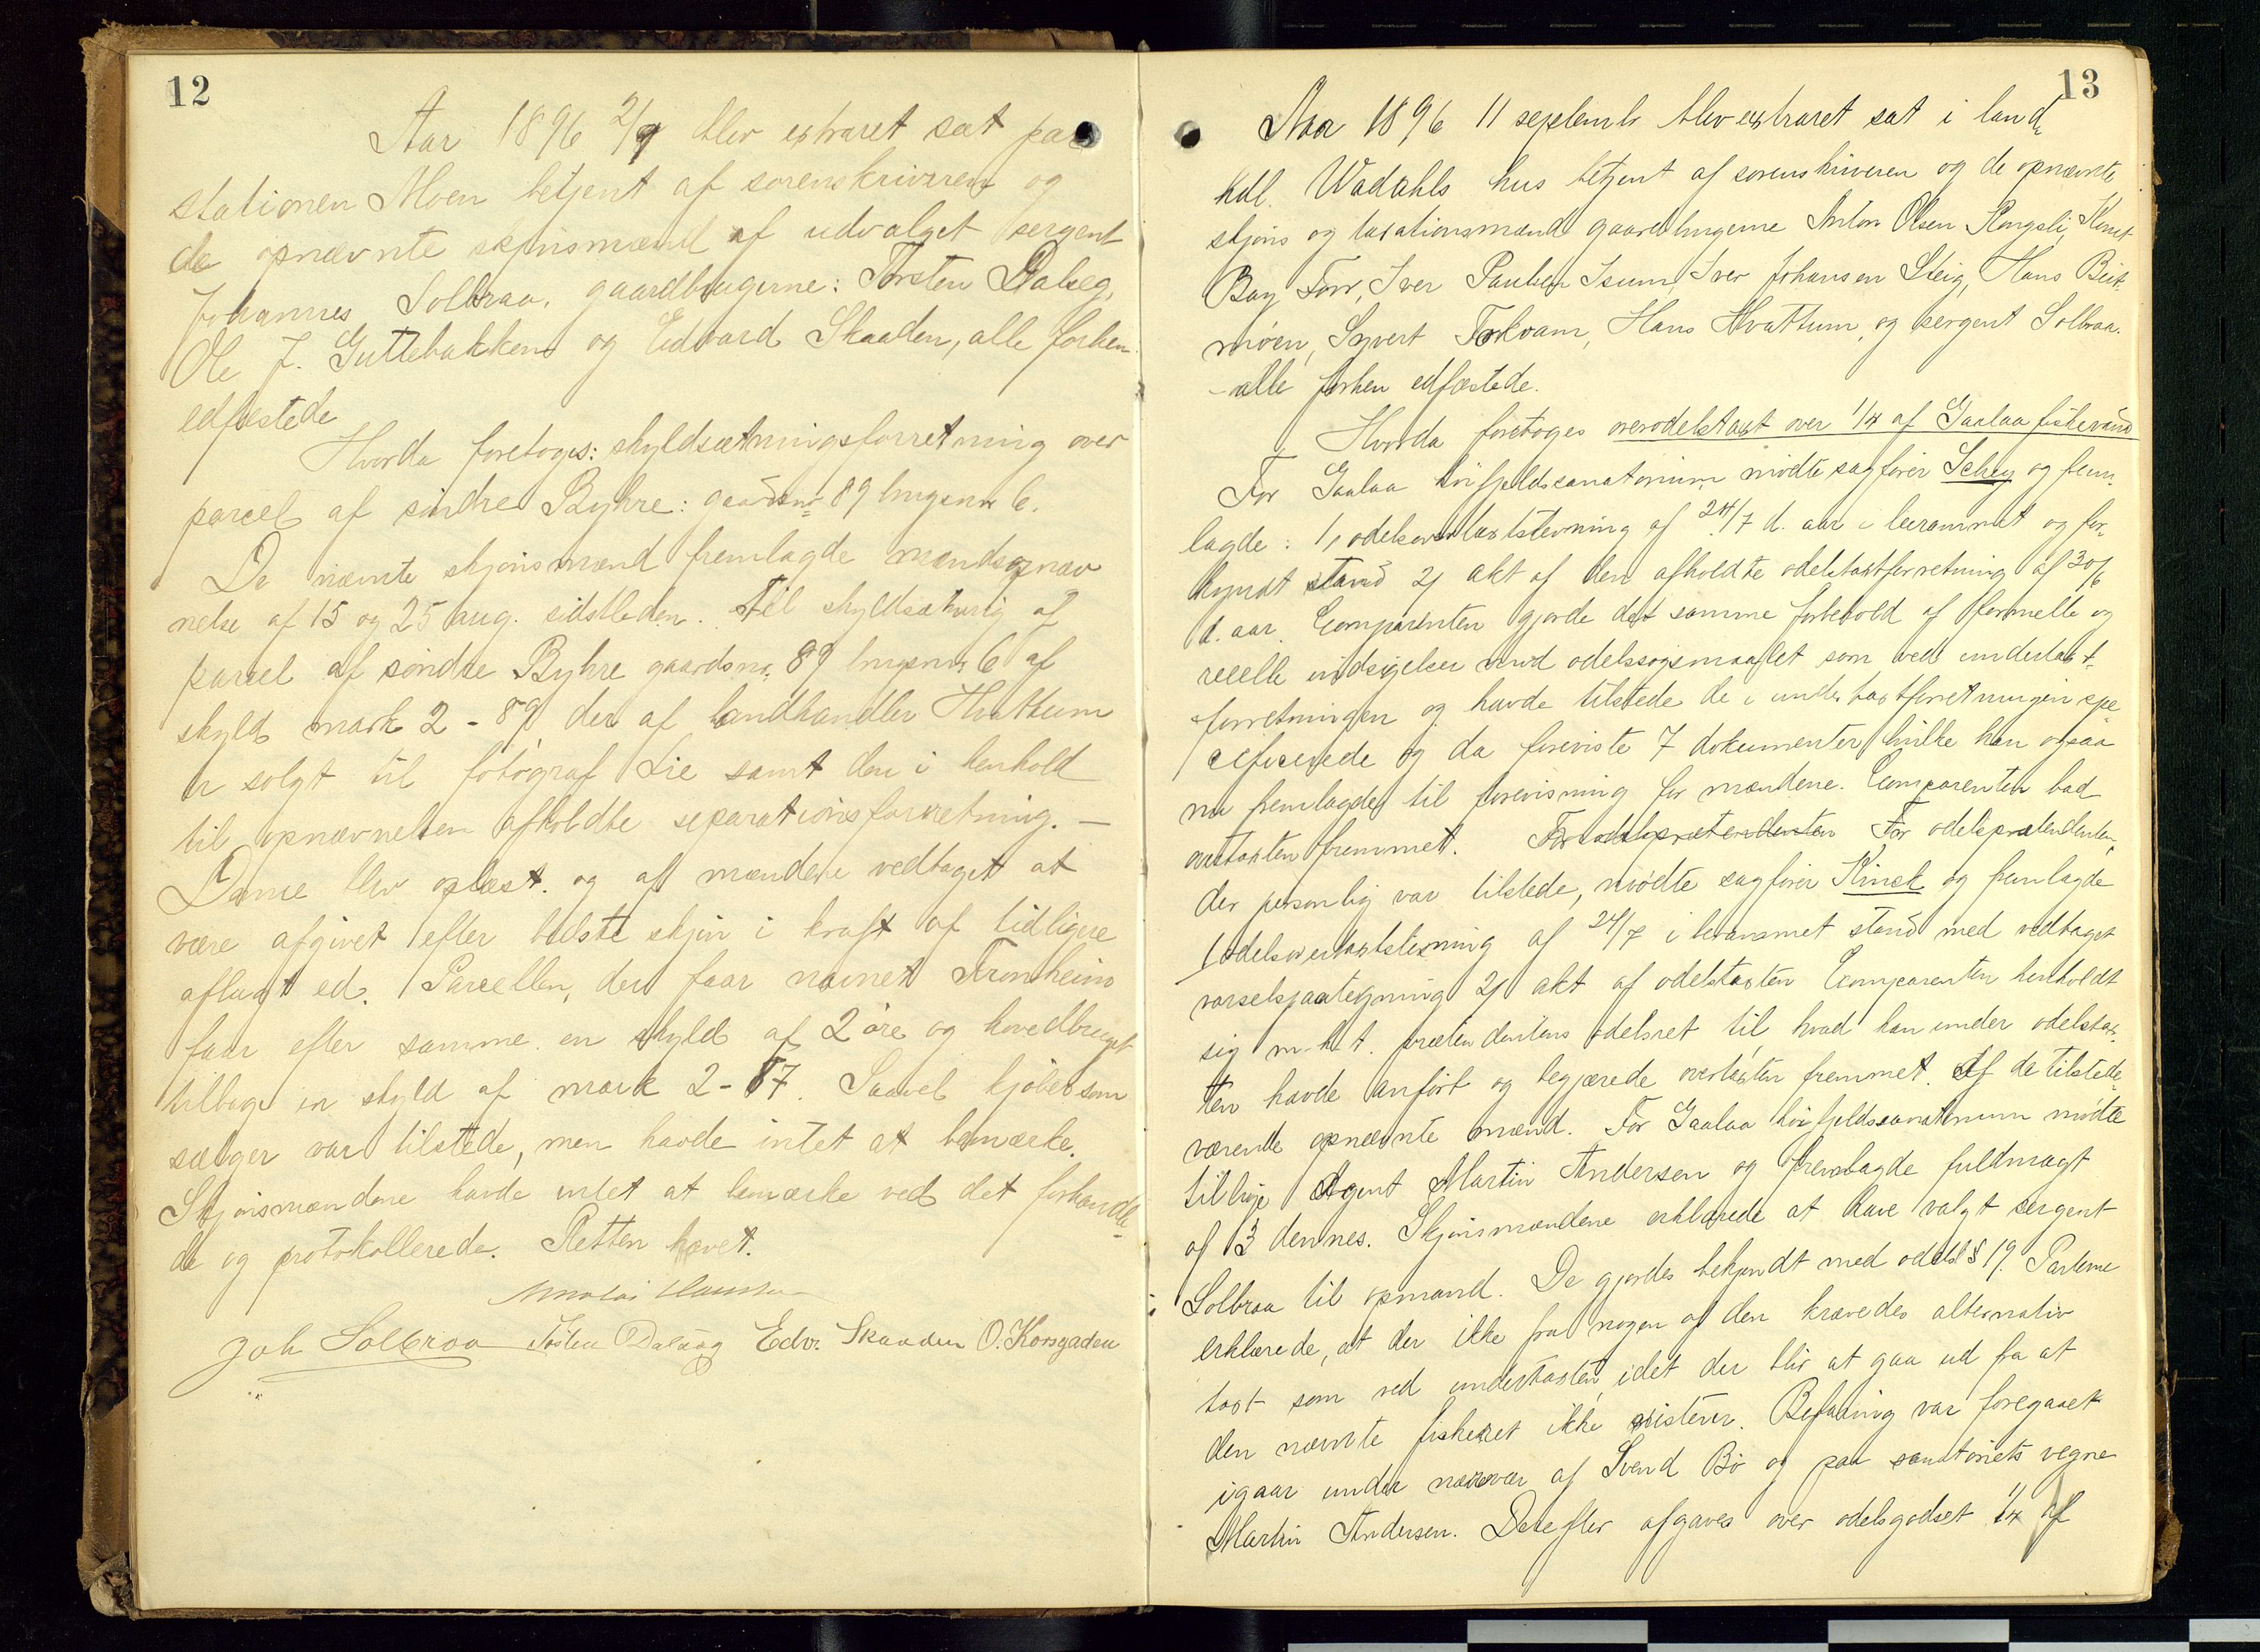 12
Aar 1896 2/9 blev extraret sat paa
stationen Moen betjent af sorenskriveren og
de opnævnte skjønsmænd af udvalget sergent
Johannes Solbraa, gaardbrugerne: Torsten Dalseg,
Ole J. Guttebakken og Edvard Skaaden, alle forhen
edfæstede
Hvorda foretoges: skyldsætningsforretning over
parcel af søndre Byhre: gaardsnr 89 brugsnr 6.
De nævnte skjønsmænd fremlagde mændsopnæv
nelse af 15 og 25 aug. sidstleden. Til skyldsætning af
parcel af søndre Byhre gaardsnr. 89 brugsnr 6 af
skyld mark 2-89 der af landhandler Hvattum
er solgt til fotograf Lie samt den i henhold
til opnævnelsen afholdte separationsforretning. —
Denne blev oplæst. og af mændene vedtaget at
være afgivet efter bedste skjøn i kraft af tidligere
aflagt ed. Parcellen, der faar navnet Tronheim
faar efter samme en skyld af 2 øre og hovedbruget
tilbage en skyld af mark 2-87. Saavel kjøber som
sælger var tilstede, men havde intet at bemærke.
Skjønsmændene havde intet at bemærke ved det forhandle-
de og protokollerede. Retten hævet.
Nicolai
Joh Solbraa Tosten Dalseg Edv. Skaaden O. Korsgaden
13
Aar 1896 11 septembr blev extraret sat i land-
hdl. Wadahls hus betjent af sorenskriveren og de opnævnte
skjøns og taxationsmænd gaardbrugerne Anton Olsen Ringsli, Knut
Bay Forr, Iver Paulsen Isum, Iver Johansen Steig, Hans Beit-
møen, Syvert Forkvam, Hans Hvattum, og sergent Solbraa.
- alle forhen edfæstede.
Hvorda foretoges overodelstaxt over 1/4 af Gaalaa fiskevand
For Gaalaa høifjeldssanatorium mødte sagfører Schey og frem-
lagde: 1, odelsovertaxtstevning af 24/7 d. aar i berammet og for-
kyndt stand 2, akt af den afholdte odelstaxtforretning af 30/6
d. aar. Comparenten gjorde det samme forbehold af formelle og
reelle indsigelser mod odelssøgsmaalet som ved undertaxt-
forretningen og havde tilstede de i undertaxtforretningen spe
cificerede og da foreviste 7 dokumenter, hvilke han ogsaa
nu fremlagde til forevisning for mændene. Comparenten bad
overtaxten fremmet. For odelsprætendenten For odelsprætendenten,
der personlig var tilstede, mødte sagfører Kinck og fremlagde
1 odelsovertaxtstevning af 24/7 i berammet stand med vedtaget
varselspaategning 2, akt af odelstaxten Comparenten henholdt
sig m.h.t. prætendentens odelsret til hvad han under odelstax-
ten havde anført og begjærede overtaxten fremmet. Af de tilstede-
værende opnævnte mænd. For Gaalaa høifjeldssanatorium mødte
tillige Agent Martin Andersen og fremlagde fuldmagt
af 3 dennes. Skjønsmændene erklærede at have valgt sergent
Solbraa til opmand. De gjordes bekjendt med odelsl § 19. Parterne
erklærede, at der ikke fra nogen af dem krævedes alternativ
taxt som ved undertaxten, idet der blir at gaa ud fra at
den nævnte fiskeret ikke existerer. Befaring var foregaaet
igaar under nærvær af Svend Bø og paa sanatoriets vegne
Martin Andersen. Derefter afgaves over odelsgodset 1/4 af